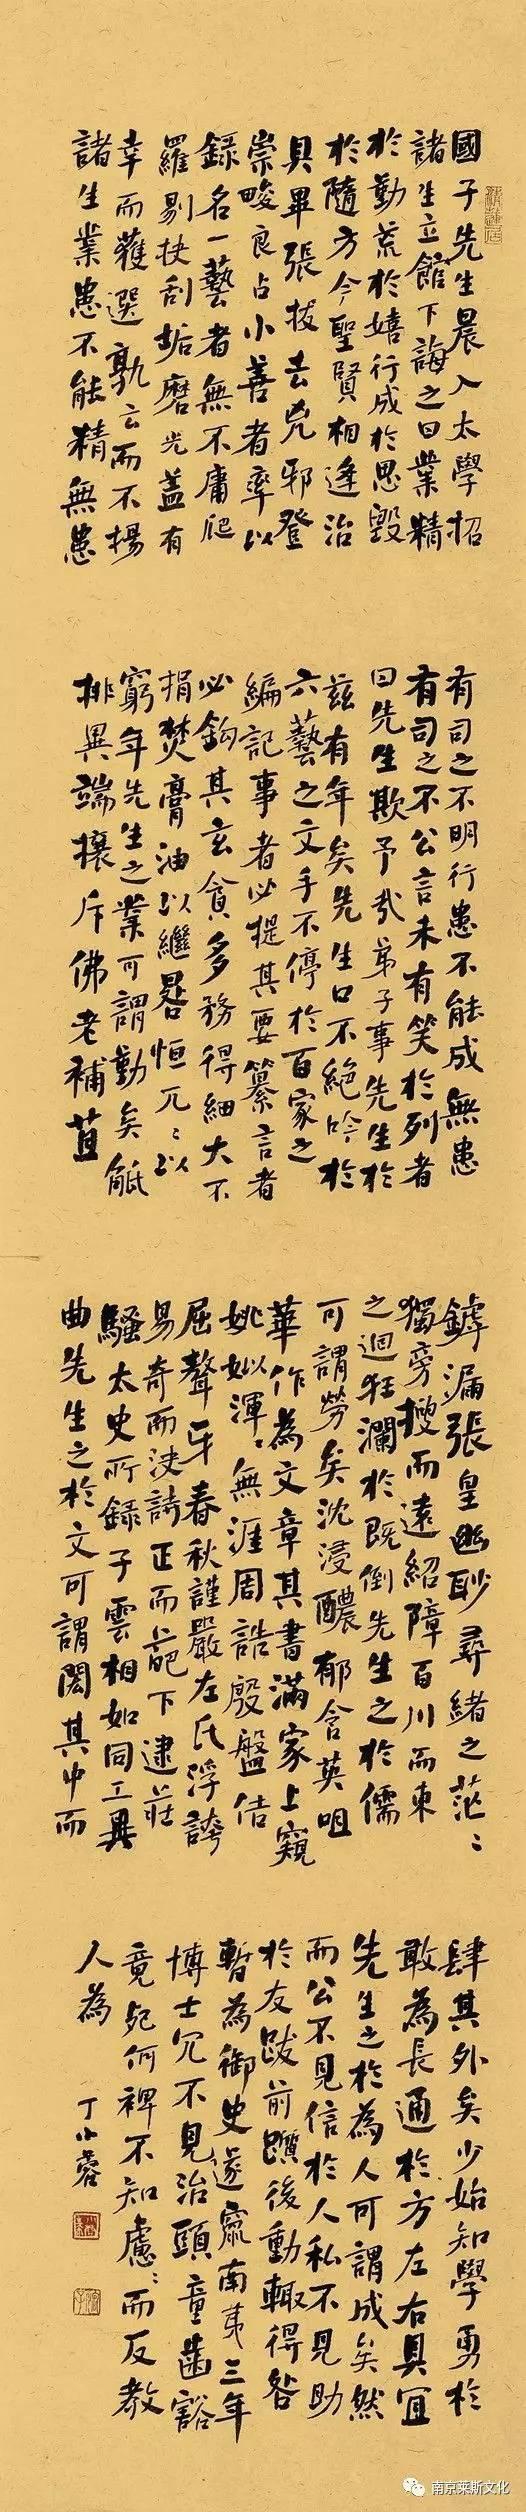 國子先生晨入太學招
諸生立館下誨之曰業精
於勤荒於嬉行成於思毀
於隨方今聖賢相逢治
具畢張拔去兇邪登
崇畯良占小善者率以
錄名一藝者無不庸爬
羅剔抉刮垢磨光蓋有
幸而獲選孰云而不揚
諸生業患不能精無患
有司之不明行患不能成無患
有司之不公言未有笑於列者
曰先生欺予哉弟子事先生於
茲有年矣先生口不絕吟於
六藝之文手不停於百家之
編記事者必提其要纂言者
必鈎其玄貪多務得細大不
捐焚膏油以繼晷恒兀〻以
窮年先生之業可謂勤矣觝
排異端攘斥佛老補苴
罅漏張皇幽眇尋緒之茫〻
獨旁搜而遠紹障百川而東
之迴狂瀾於既倒先生之於儒
可謂勞矣沈浸醲郁含英咀
華作為文章其書滿家上窺
姚姒渾〻無涯周誥殷盤佶
屈聱牙春秋謹嚴左氏浮誇
易奇而法詩正而葩下逮莊
騷太史所錄子雲相如同工異
曲先生之於文可謂閎其中而
肆其外矣少始知學勇於
敢為長通於方左右具宜
先生之於為人可謂成矣然
而公不見信於人私不見助
於友跋前躓後動輒得咎
暫為御史遂竄南夷三年
博士冗不見治頭童齒豁
竟死何裨不知慮〻而反教
人為 丁小蓉
南京莱斯文化